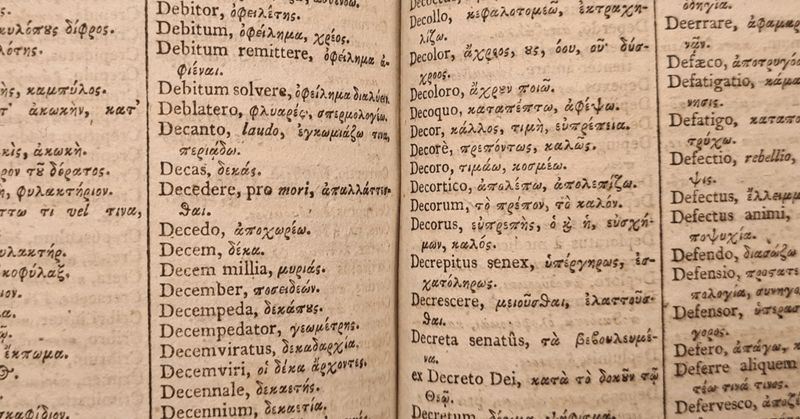 κυλόπυς δίφρος.
λότης.
ης, καμπύλος.
τ' ἀκωκὴν, κατ'
κὶς, ἀκωκή.
ρον τοῦ δόρατος.
η, φυλακτήριον.
ττω τι vel τινα,
υλακτήρ.
κοφύλαξ,
ιον.
α.
ἔκπωμα.
σκαφίδιον.
Debitor, ὀφειλέτης.
Debitum, ὀφείλημα, χρέος.
Debitum remittere, ὀφείλημα ἀ-
φιέναι.
Debitum solvere, ὀφείλημα διαλύειν.
Deblatero, φλυαρέω, σπερμολογέω.
Decanto, laudo, ἐγκωμιάζω τινα,
περιάδω.
Decas, δεκάς.
Decedere, pro mori, ἀπαλλάττεσ-
θαι.
Decedo, ἀποχωρέω.
Decem, δέκα.
Decem millia, μυριάς.
December, ποσειδεών.
Decempeda, δεκάπυς.
Decempedator, γεωμέτρης.
Decemviratus, δεκαδαρχία.
Decemviri, οἱ δέκα ἄρχοντες.
Decennale, δεκαετής.
Decennium, δεκαετία.
Decollo, κεφαλοτομέω, ἐκτραχη-
λίζω.
Decolor, ἄχροος, ὁς, όου, οῦ· δύσ-
χροος.
Decoloro, ἄχρουν ποιῶ.
Decoquo, καταπέπτω, ἀφέψω.
Decor, κάλλος, τιμὴ, εὐπρέπεια.
Decorè, πρεπόντως, καλῶς.
Decoro, τιμάω, κοσμέω.
Decortico, ἀπολέπω, ἀπολεπίζω.
Decorum, τὸ πρέπον, τὸ καλόν.
Decorus, εὐπρεπὴς, ὁ ϗ ἡ, εὐσχή-
μων, καλός.
Decrepitus senex, ὑπέργηρως, ἐσ-
χατόγηρως.
Decrescere, μειοῦσθαι, ἐλαττοῦσ-
θαι.
Decreta senatûs, τὰ βεβουλευμέ-
να.
ex Decreto Dei, κατὰ τὸ δοκοῦν τῷ
Θεῷ.
Decretum,
ὁδηγία.
Deerrare, ἀφαμαρ
νᾶν.
Defæco, ἀποτρυγό
Defatigatio, κάμα
νησις.
Defatigo, καταπο
τρύχω.
Defectio, rebellio,
ψις.
Defectus, ἔλλειμμ
Defectus animi,
ποψυχία.
Defendo, διασώζω
Defensio, προστατε
πολογία, συνηγο
Defensor, ὑπερασ
γορος.
Defero, ἀπάγω, κ
Deferre aliquem
τέω τινά τινος.
Defervesco, ἀποζέ